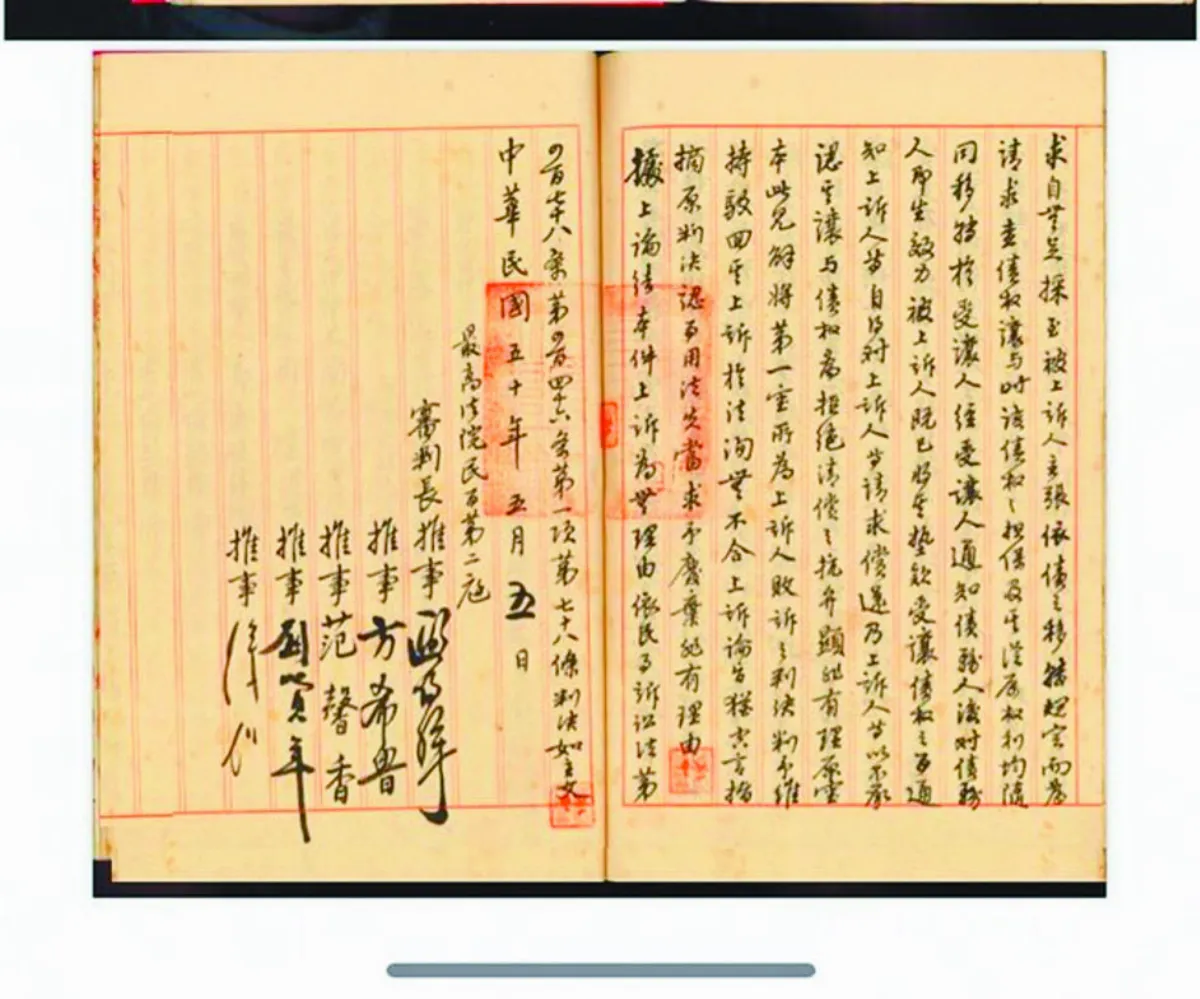 求自無足採至被上訴人主張依債之移轉規定而為
請求查債权讓与时該債权之担保及其從屬权利均隨
同移轉於受讓人經受讓人通知債務人後对債務
人即生効力被上訴人既已将其墊款受讓債权之事通
知上訴人等自得对上訴人等請求償還乃上訴人等以不承
認其讓与債权為拒絕清償之抗弁顯非有理原審
本此見解將第一審所為上訴人敗訴之判決判予維
持駁回其上訴於法洵無不合上訴論旨猶空言指
摘原判決認事用法失當求予廢棄非有理由
據上論結本件上訴為無理由依民事訴訟法第
四百七十八条第四百四十六条第一項第七十八條判決如主文
中華民國五十年五月五日
最高法院民事第二庭
審判長推事
推事方希魯
推事范馨香
推事劉年
推事